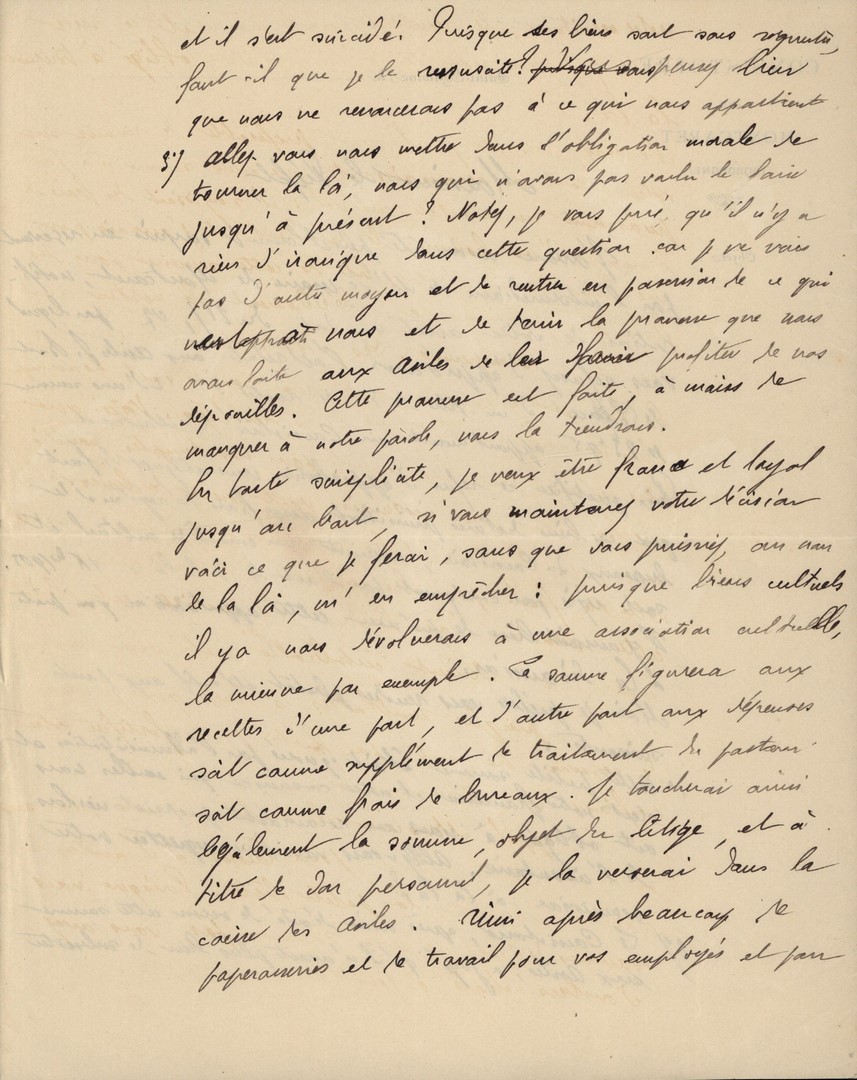 et il s'est suicidé. Puisque ses biens sont sous séquestre,
faut-il que je le ressuscite? pensez bien
que nous ne renoncerons pas à ce qui nous appartient
3°/ Allez vous nous mettre dans l'obligation morale de
tourner la loi, nous qui n'avons pas voulu le faire
jusqu'à présent? Notez, je vous prie, qu'il n'y a
rien d'ironique dans cette question car je ne vois
pas d'autre moyen et de rentrer en possession de ce qui
est à nous et de tenir la promesse que nous
avons faite aux Asiles de les faire profiter de nos
dépouilles. Cette promesse est faite, à moins de
manquer à notre parole, nous la tiendrons.
En toute simplicité, je veux être franc et loyal
jusqu'au bout, si vous maintenez votre décision
voici ce que je ferai, sans que vous puissiez, au nom
de la loi, m'en empêcher: puisque biens cultuels
il y a nous dévoluerons à une association cultuelle,
la mienne par exemple. La somme figurera aux
recettes d'une part, et d'autre part aux dépenses
soit comme supplément de traitement du pasteur
soit comme frais de bureaux. Je toucherai ainsi
légalement la somme, objet du litige, et à
titre de don personnel, je la verserai dans la
caisse des Asiles. Ainsi après beaucoup de
paperasseries et de travail pour vos employés et pour